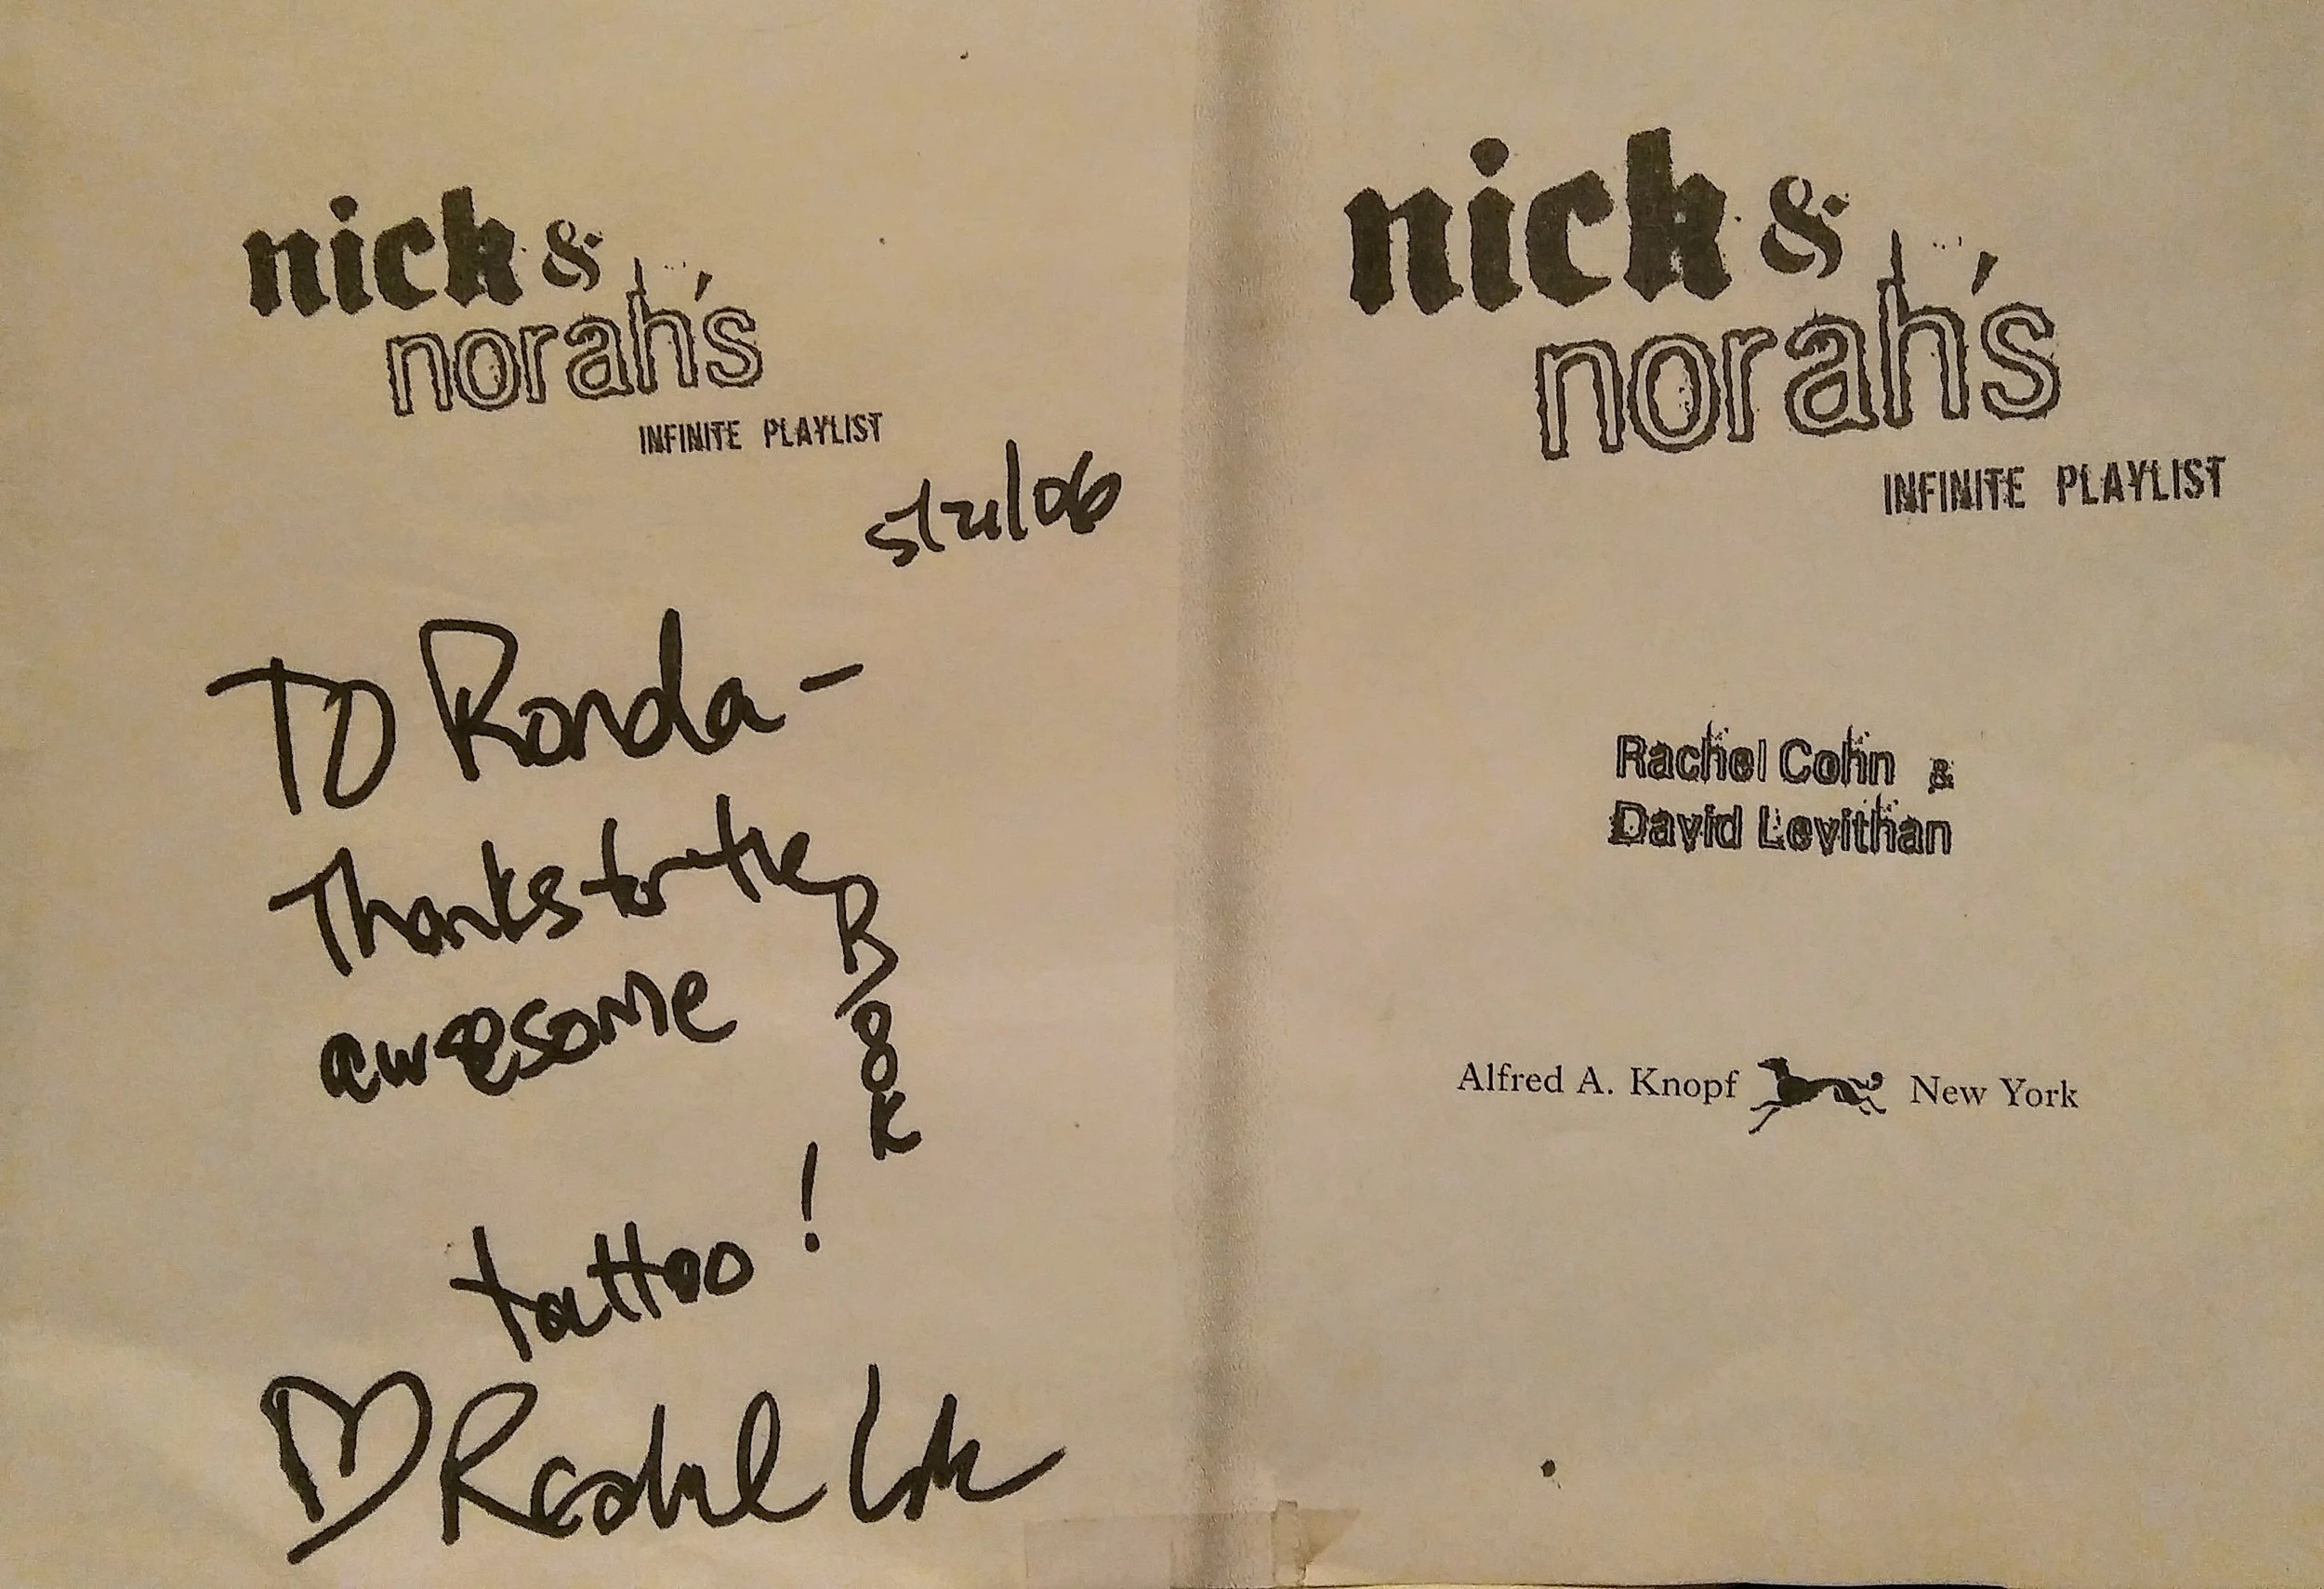 nick &
norah's
INFINITE PLAYLIST
5/21/06
To Ronda -
Thanks for the
awesome
Book
tattoo!
Rachel Cohn
nick &
norah's
INFINITE PLAYLIST
Rachel Cohn &
David Levithan
Alfred A. Knopf New York